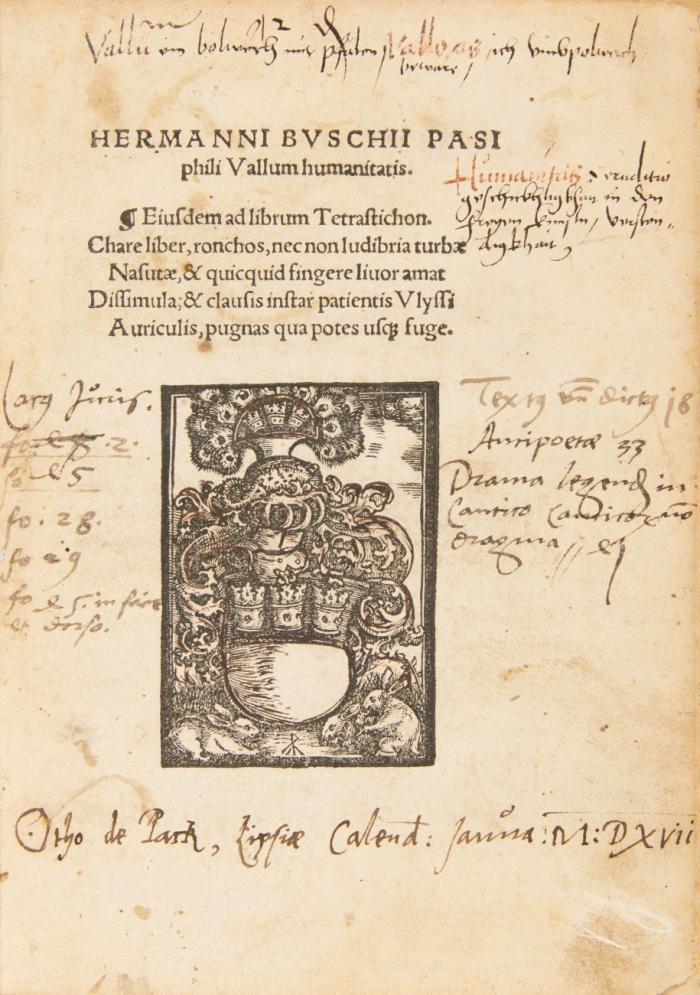 Vallū ein bolwerch mit pfelen, Vallare ich
beware,
HERMANNI BVSCHII PASI
phili Vallum humanitatis.
¶ Eiusdem ad librum Tetrastichon.
Chare liber, ronchos, nec non ludibria turbæ
Nasutæ, & quicquid fingere liuor amat
Dissimula; & clausis instar patientis Vlyssi
Auriculis, pugnas qua potes usq; fuge.
Humanitas eruditio
in den
freyen
fo. 2.
fo 5
fo. 28.
fo 29
fo 5. in facie
et dorso.
18
Antipoetæ 33
Drama legend in
Cantico
dragma
Otho de Pack, Lipsiæ Calend: Janua: M:DXvii